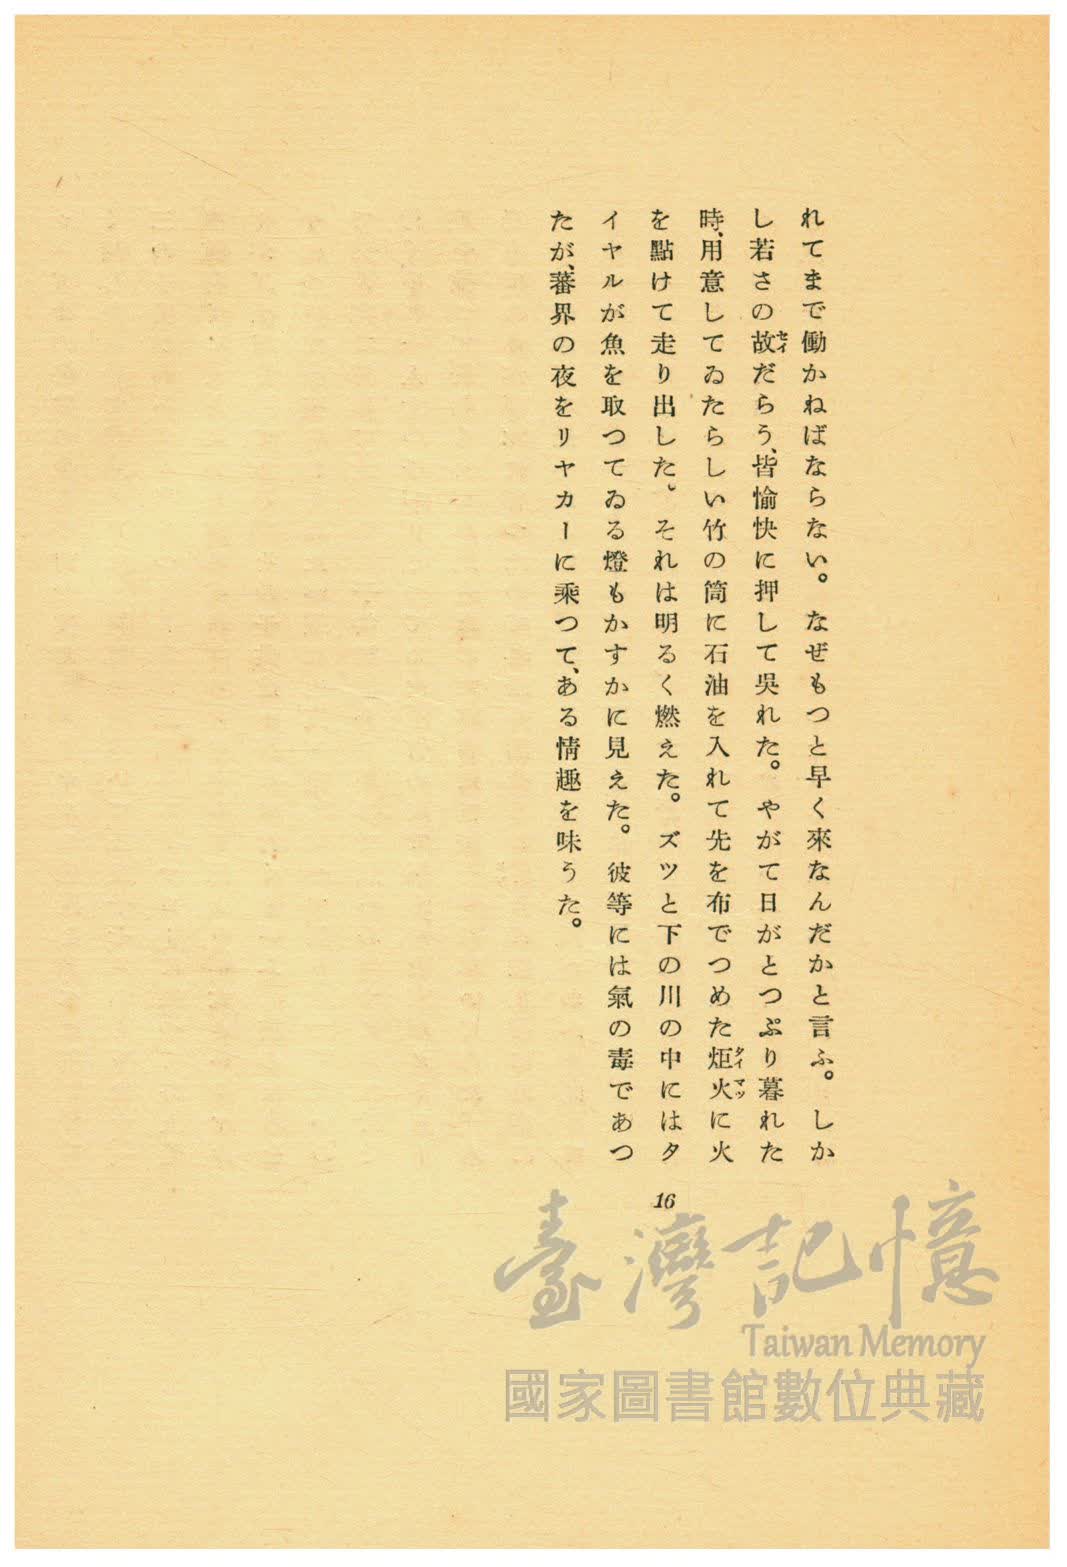 れてまで働かねばならない。なぜもつと早く來なんだかと言ふ。しか
し若さの故セイだらう、皆愉快に押して吳れた。やがて日がとつぷり暮れた
時、用意してゐたらしい竹の筒に石油を入れて先を布でつめた炬火タイマツに火
を點けて走り出した。それは明るく燃えた。ズツと下の川の中にはタ
イヤルが魚を取つてゐる燈もかすかに見えた。彼等には氣の毒であつ
たが、蕃界の夜をリヤカーに乘つて、ある情趣を味うた。
16
臺灣記憶
Taiwan Memory
國家圖書館數位典藏